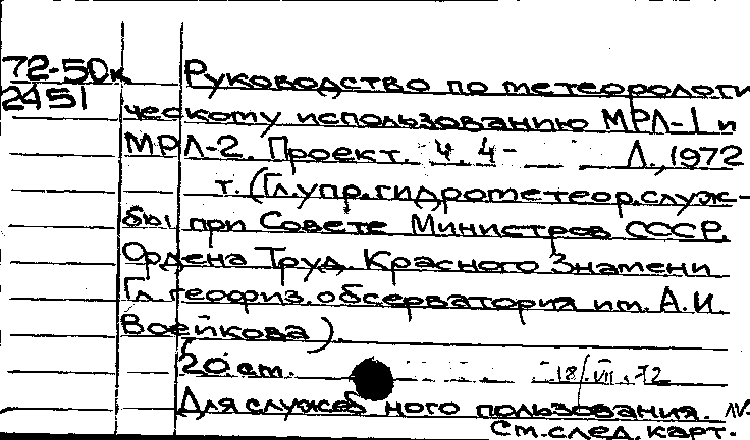 72-50к Руководство по метеорологи
2451 ческому использованию МРЛ-1 и
МРЛ-2. Проект. Ч. 4- Л., 1972
т. (Гл. упр. гидрометеор. служ-
бы при Совете Министров СССР.
Ордена Труд. Красного Знамени
Гл. геофиз. обсерватория им. А.И.
Воейкова).
20 см. 18/VII.72
Для служеб ного пользования.
См. след. карт.